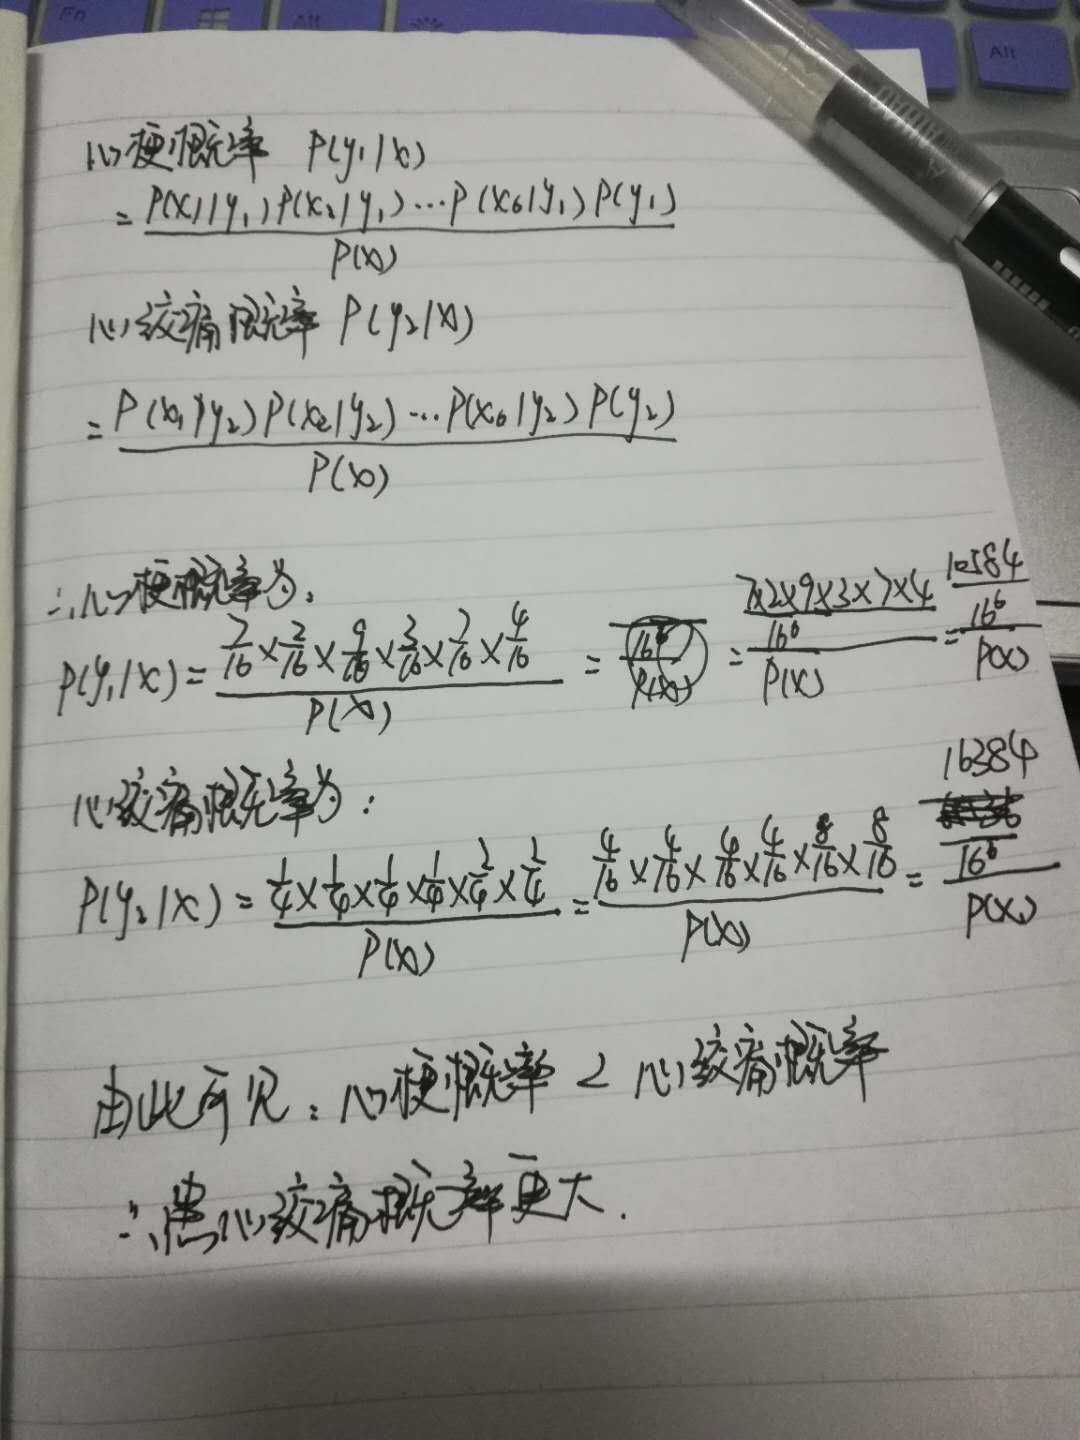 Fn
Alt
Alt
心梗概率 P(y₁|x)
= P(x₁|y₁)P(x₂|y₁)…P(x₆|y₁)P(y₁)
P(x)
心绞痛概率 P(y₂|x)
= P(x₁|y₂)P(x₂|y₂)…P(x₆|y₂)P(y₂)
P(x)
∴心梗概率为:
P(y₁|x) = 7/16 × 2/16 × 9/16 × 3/16 × 7/16 × 4/16 / P(x) = 16⁶ / P(x) = 7×2×9×3×7×4 / 16⁶ / P(x) = 10584 / 16⁶ / P(x)
心绞痛概率为:
P(y₂|x) = 1/4 × 1/4 × 1/4 × 1/4 × 2/4 × 2/4 / P(x) = 4/16 × 4/16 × 4/16 × 4/16 × 8/16 × 8/16 / P(x) = 16384 / 16⁶ / P(x)
由此可见:心梗概率 < 心绞痛概率
∴患心绞痛概率更大.